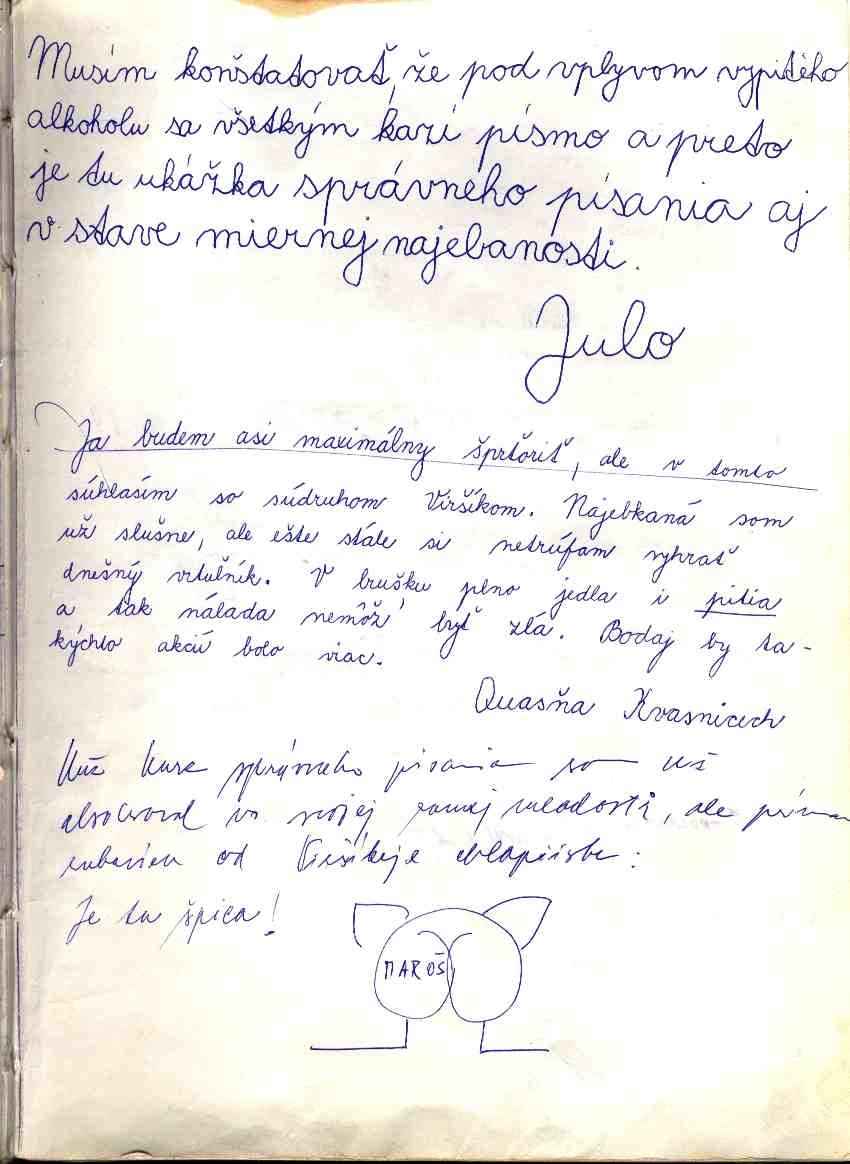 Musím konštatovať, že pod vplyvom vypitého
alkoholu sa všetkým kazí písmo a preto
je tu ukážka správneho písania aj
v stave miernej najebanosti.
Julo
Ja budem asi maximálny šprťoriť, ale v tomto
súhlasím so súdruhom Viršíkom. Najebkaná som
už slušne, ale ešte stále si netrúfam vyhrať
dnešný vrtuľník. V brušku plno jedla i pitia
a tak nálada nemôž' byť zlá. Bodaj by ta-
kýchto akcií bolo viac.
Quasňa Kvasnicech
kurz správneho písania som už
absolvoval vo svojej ranej mladosti, ale
od
Je tu špica!
MAROŠ